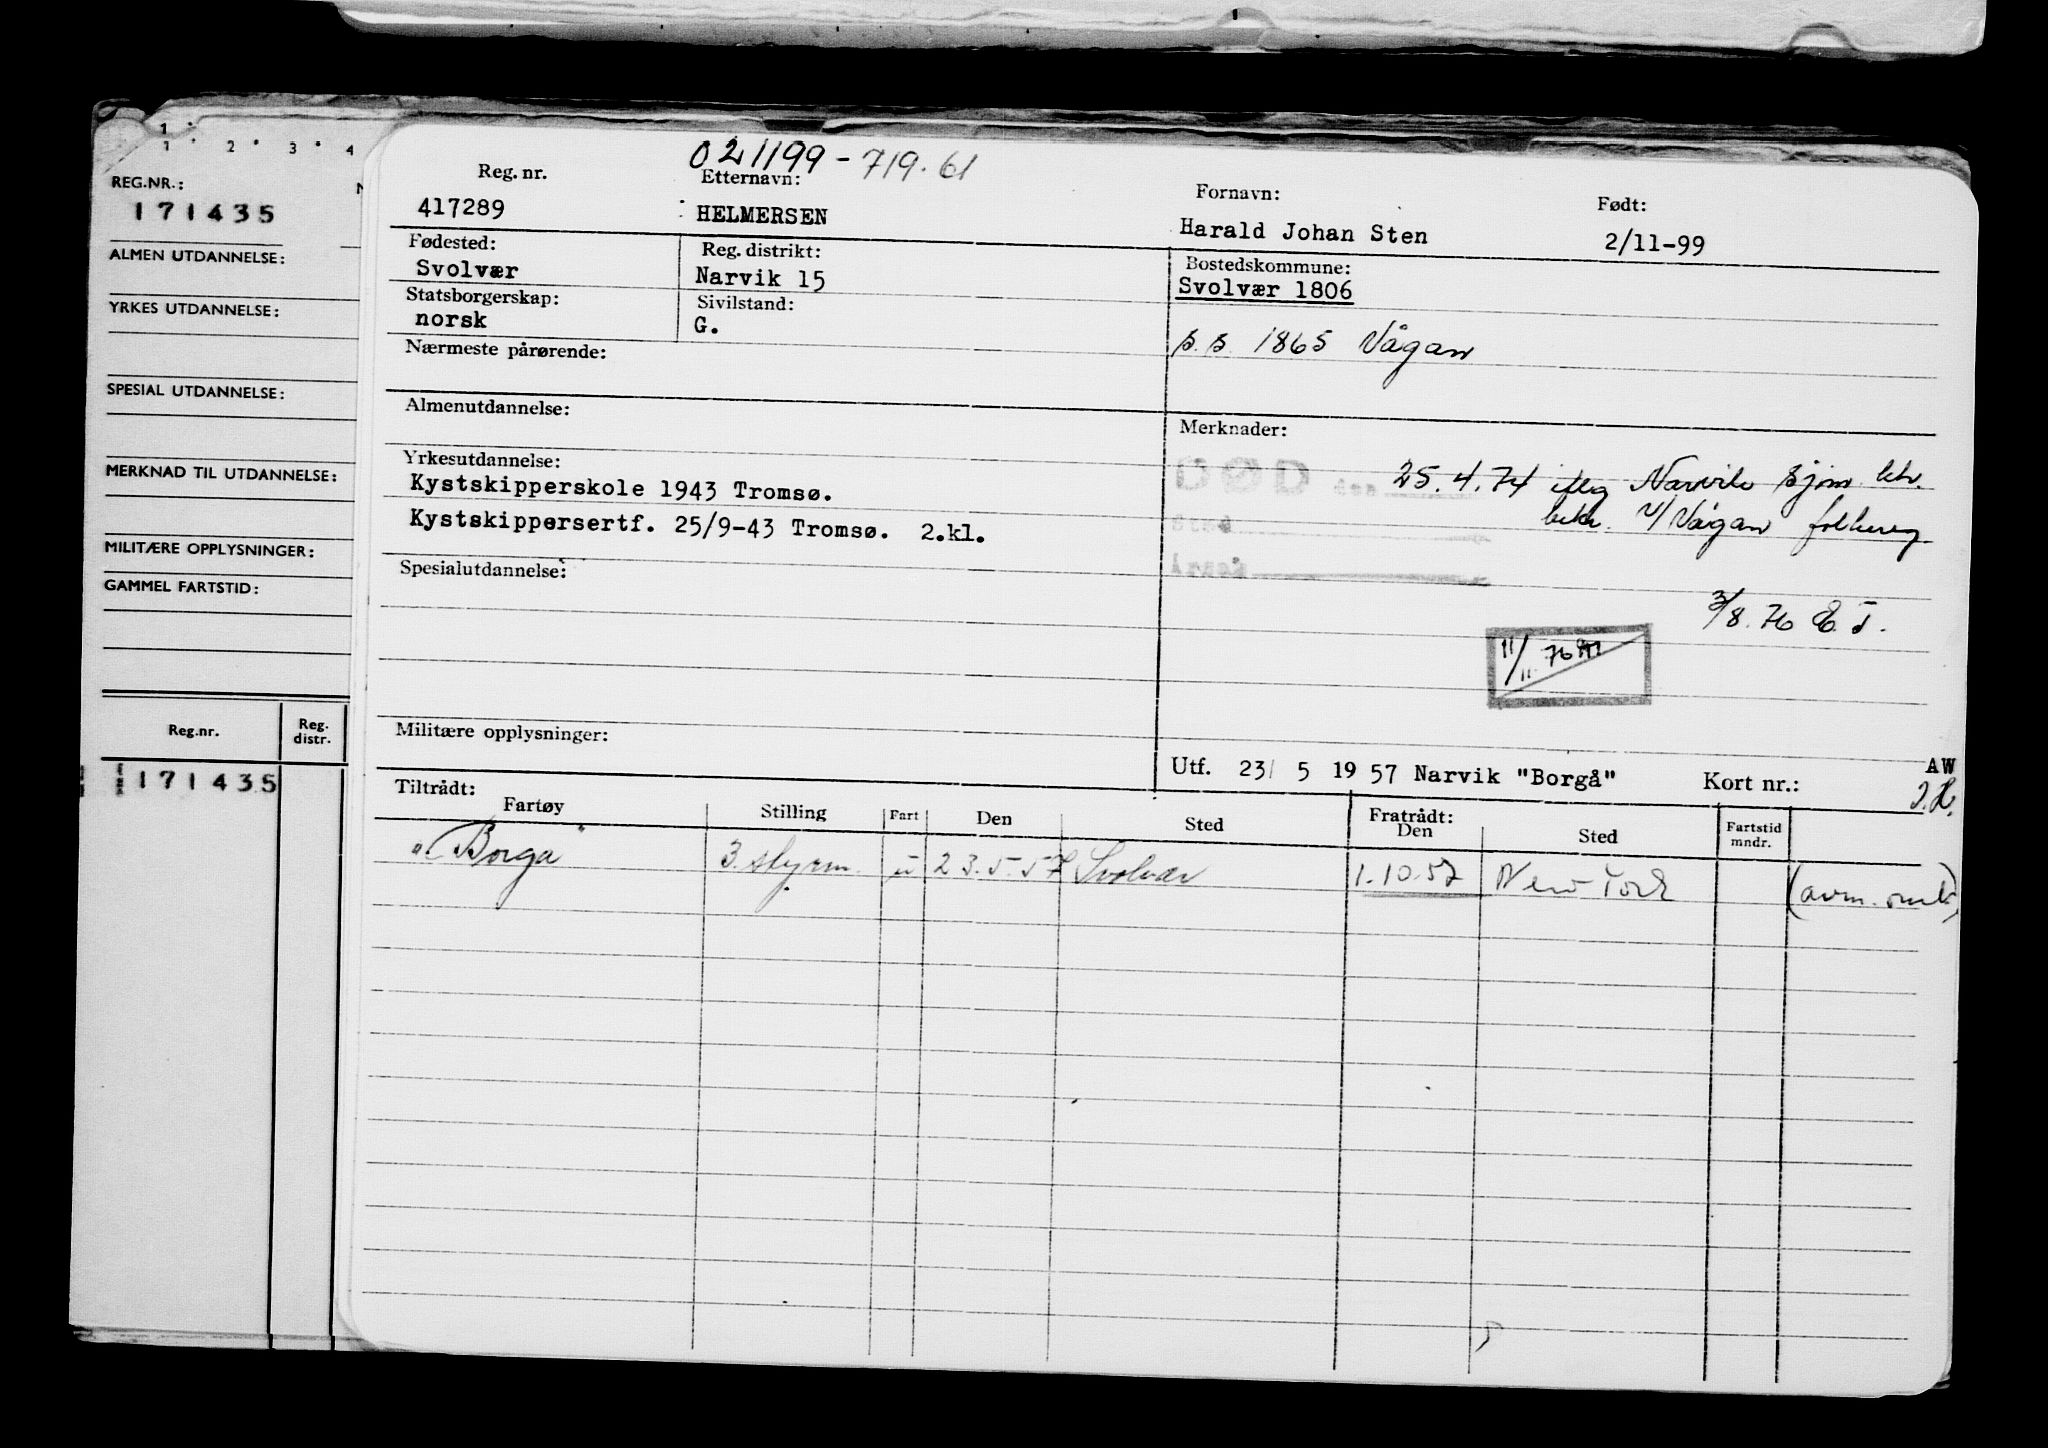 1 2 3 4
REG.NR.:
171435
ALMEN UTDANNELSE:
YRKES UTDANNELSE:
SPESIAL UTDANNELSE:
MERKNAD TIL UTDANNELSE:
MILITÆRE OPPLYSNINGER:
GAMMEL FARTSTID:
Reg.nr. Reg. distr.
171435
021199-719.61
Reg. nr. Etternavn: Fornavn: Født:
417289 HELMERSEN Harald Johan Sten 2/11-99
Fødested: Reg. distrikt: Bostedskommune:
Svolvær Narvik 15 Svolvær 1806
Statsborgerskap: Sivilstand:
norsk G.
s.s. 1865 Vågan
Nærmeste pårørende:
Almenutdannelse: Merknader:
Yrkesutdannelse:
Kystskipperskole 1943 Tromsø.
Kystskippersertf. 25/9-43 Tromsø. 2.kl.
DØD den
Sted
Årsak
25.4.74 iflg Narvik sjøm. ktr.
bekr. v/Vågan folkereg.
3/8.76 E.T.
11/11 76
Spesialutdannelse:
Militære opplysninger:
Utf. 23/ 5 1957 Narvik "Borgå" Kort nr.: AW
Tiltrådt: Fratrådt:
Fartøy Stilling Fart Den Sted Den Sted Fartstid mndr.
"Borgå" 3. styrm. u 23.5.57 Svolvær 1.10.57 New York (avm. smk)